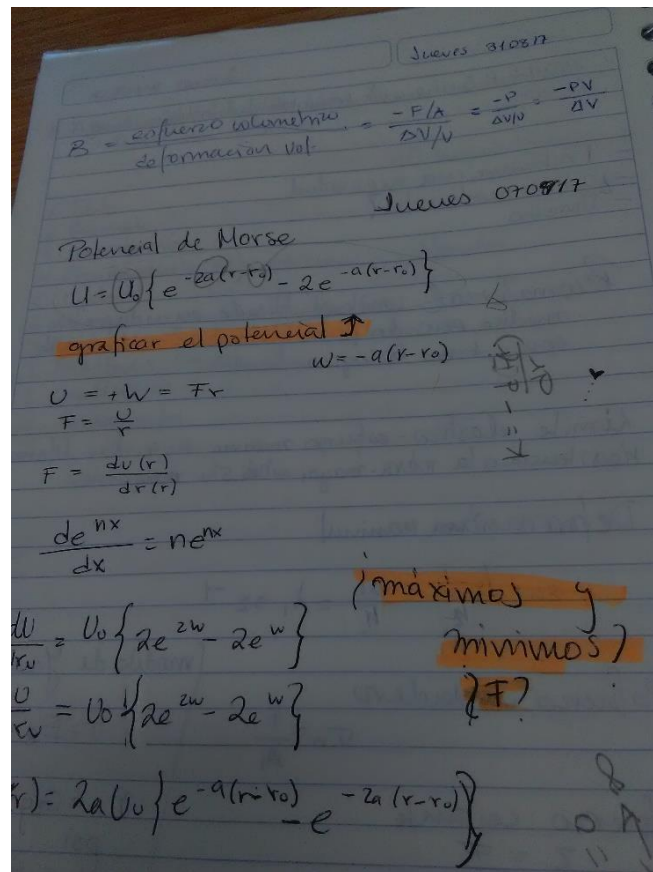 Jueves 310817
B = esfuerzo volumetrico / deformacion vol. = -F/A / ΔV/V = -P / ΔV/V = -PV / ΔV
Jueves 070917
Potencial de Morse
U = U₀{e^-2a(r-r₀) - 2e^-a(r-r₀)}
graficar el potencial ↑
w = -a(r-r₀)
U = +W = Fr
F = U/r
F = dU(r)/dr(r)
de^nx/dx = ne^nx
¿máximos y
mínimos?
¿F?
dU = U₀{2e^2w - 2e^w}
= U₀{2e^2w - 2e^w}
r) = 2aU₀{e^-a(r-r₀) - e^-2a(r-r₀)}